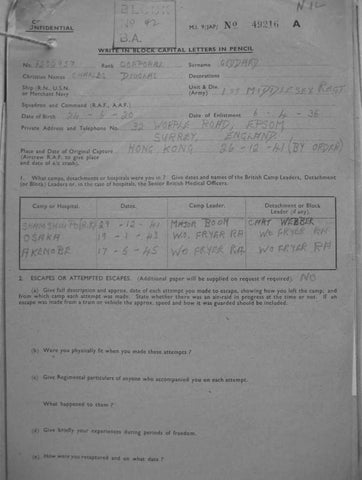 CONFIDENTIAL
BLOCK
No 42
B.A.
NIL
M.I. 9/JAP/ No 49216 A
WRITE IN BLOCK CAPITAL LETTERS IN PENCIL
No. Rank CORPORAL Surname GODDARD
Christian Names CHARLES DOUGLAS Decorations
Ship (R.N., U.S.N. or Merchant Navy Unit & Div. (Army) 1ST MIDDLESEX REGT
Squadron and Command (R.A.F., A.A.F.)
Date of Birth 24-6-20 Date of Enlistment 6-4-36
Private Address and Telephone No. 32 WORPLE ROAD, EPSOM
SURREY, ENGLAND.
Place and Date of Original Capture HONG KONG 26-12-41 (BY ORDER)
(Aircrew R.A.F. to give place
and date of a/c crash).
1. What camps, detachments or hospitals were you in? Give dates and names of the British Camp Leaders, Detachment
(or Block) Leaders or, in the case of hospitals, the Senior British Medical Officers.
Camp or Hospital. Dates. Camp Leader. Detachment or Block Leader (if any).
SHAMSHUIPO (H.K) 29-12-41 MAJOR BOON CAPT WEBBER
OSAKA 19-1-43 WO. FRYER RA WO FRYER RA
AKENOBE 17-6-45 WO FRYER RA WO FRYER RA
2. ESCAPES OR ATTEMPTED ESCAPES. (Additional paper will be supplied on request if required). NO
(a) Give full description and approx. date of each attempt you made to escape, showing how you left the camp, and
from which camp each attempt was made. State whether there was an air-raid in progress at the time or not. If an
escape was made from a train or vehicle the approx. speed and how it was guarded should be included.
(b) Were you physically fit when you made these attempts?
(c) Give Regimental particulars of anyone who accompanied you on each attempt.
What happened to them?
(d) Give briefly your experiences during periods of freedom.
(e) How were you recaptured and on what date?